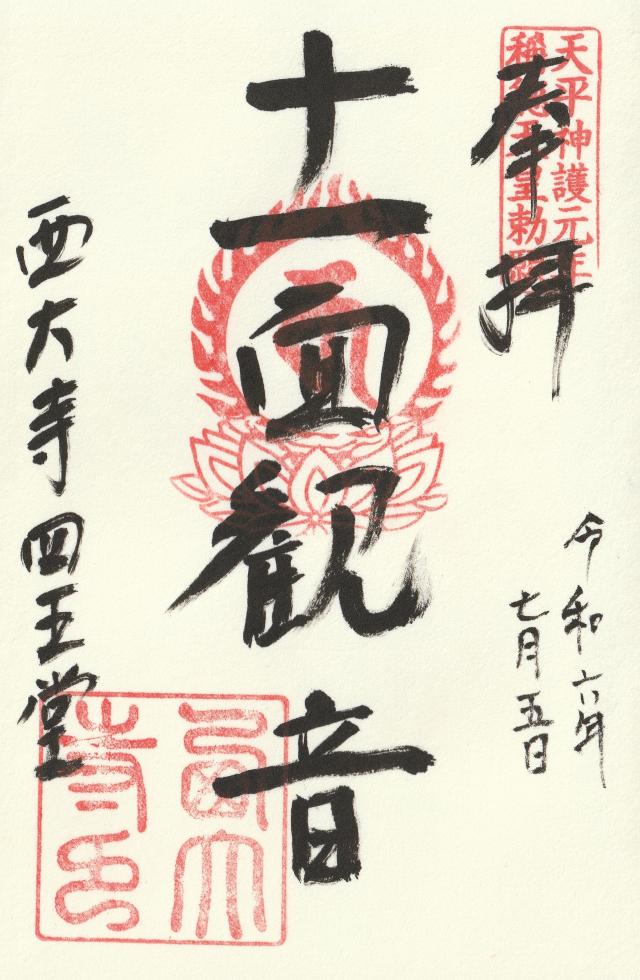 天平神護元年
稱徳天皇勅願
奉拝
令和六年
七月五日
十一面観音
西大寺四王堂
西大寺印